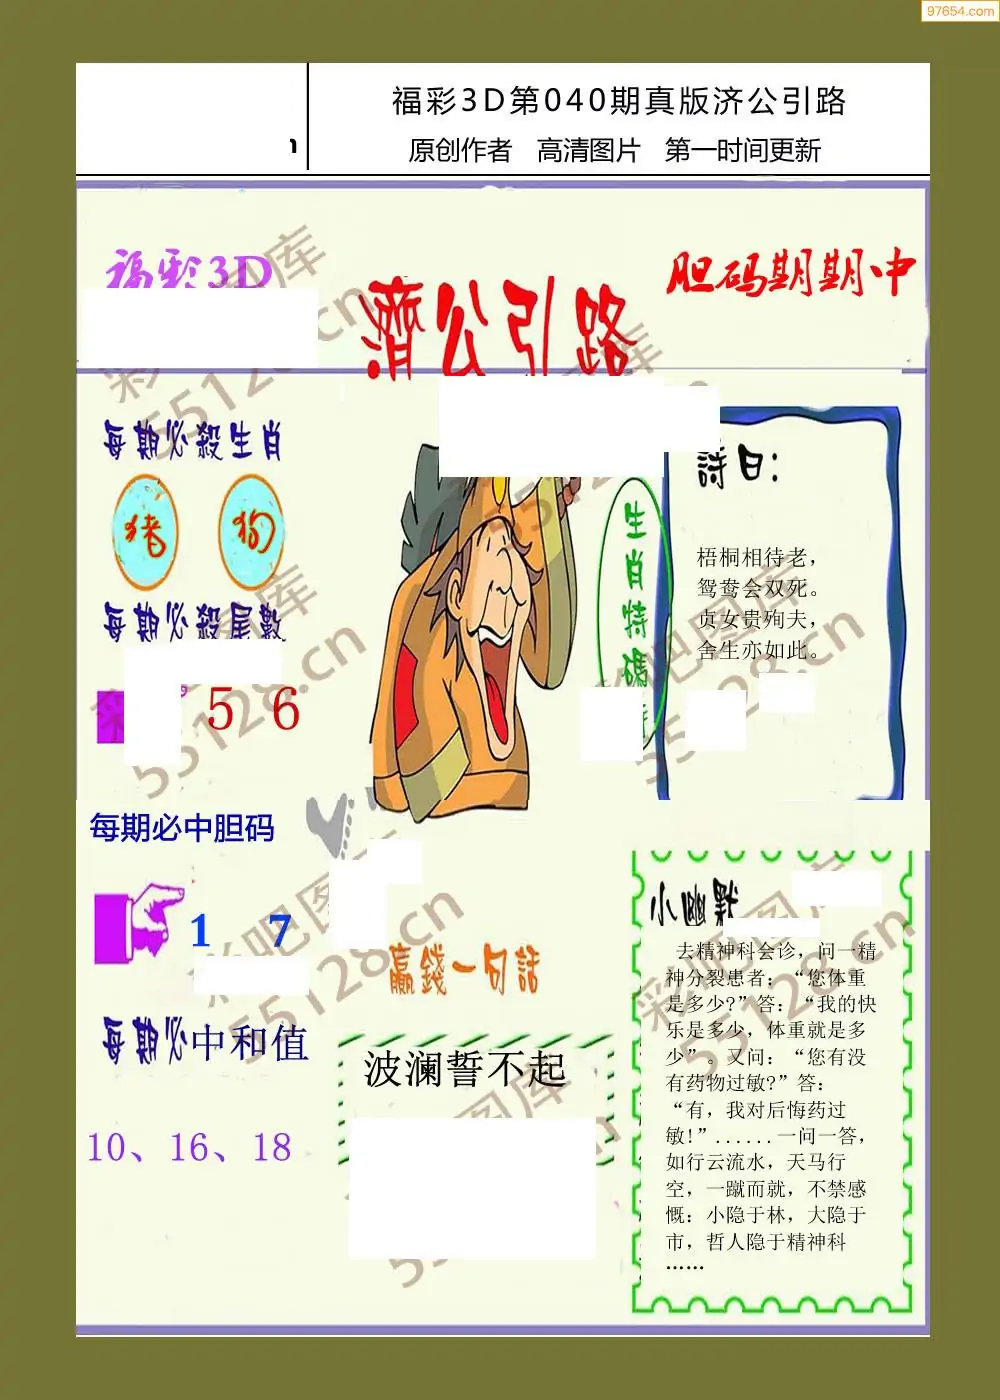 97654.com
福彩3D第040期真版济公引路
原创作者 高清图片 第一时间更新
福彩3D
胆码期期中
濟公引路
每期必殺生肖
猪 狗
每期必殺尾數
5 6
生肖特碼
詩曰：
梧桐相待老，
鸳鸯会双死。
贞女贵殉夫，
舍生亦如此。
每期必中胆码
1 7
每期必中和值
10、16、18
贏錢一句話
波澜誓不起
小幽默
去精神科会诊，问一精
神分裂患者：“您体重
是多少?”答：“我的快
乐是多少，体重就是多
少”。又问：“您有没
有药物过敏?”答：
“有，我对后悔药过
敏!”......一问一答，
如行云流水，天马行
空，一蹴而就，不禁感
慨：小隐于林，大隐于
市，哲人隐于精神科
……
彩吧图库
55128.cn